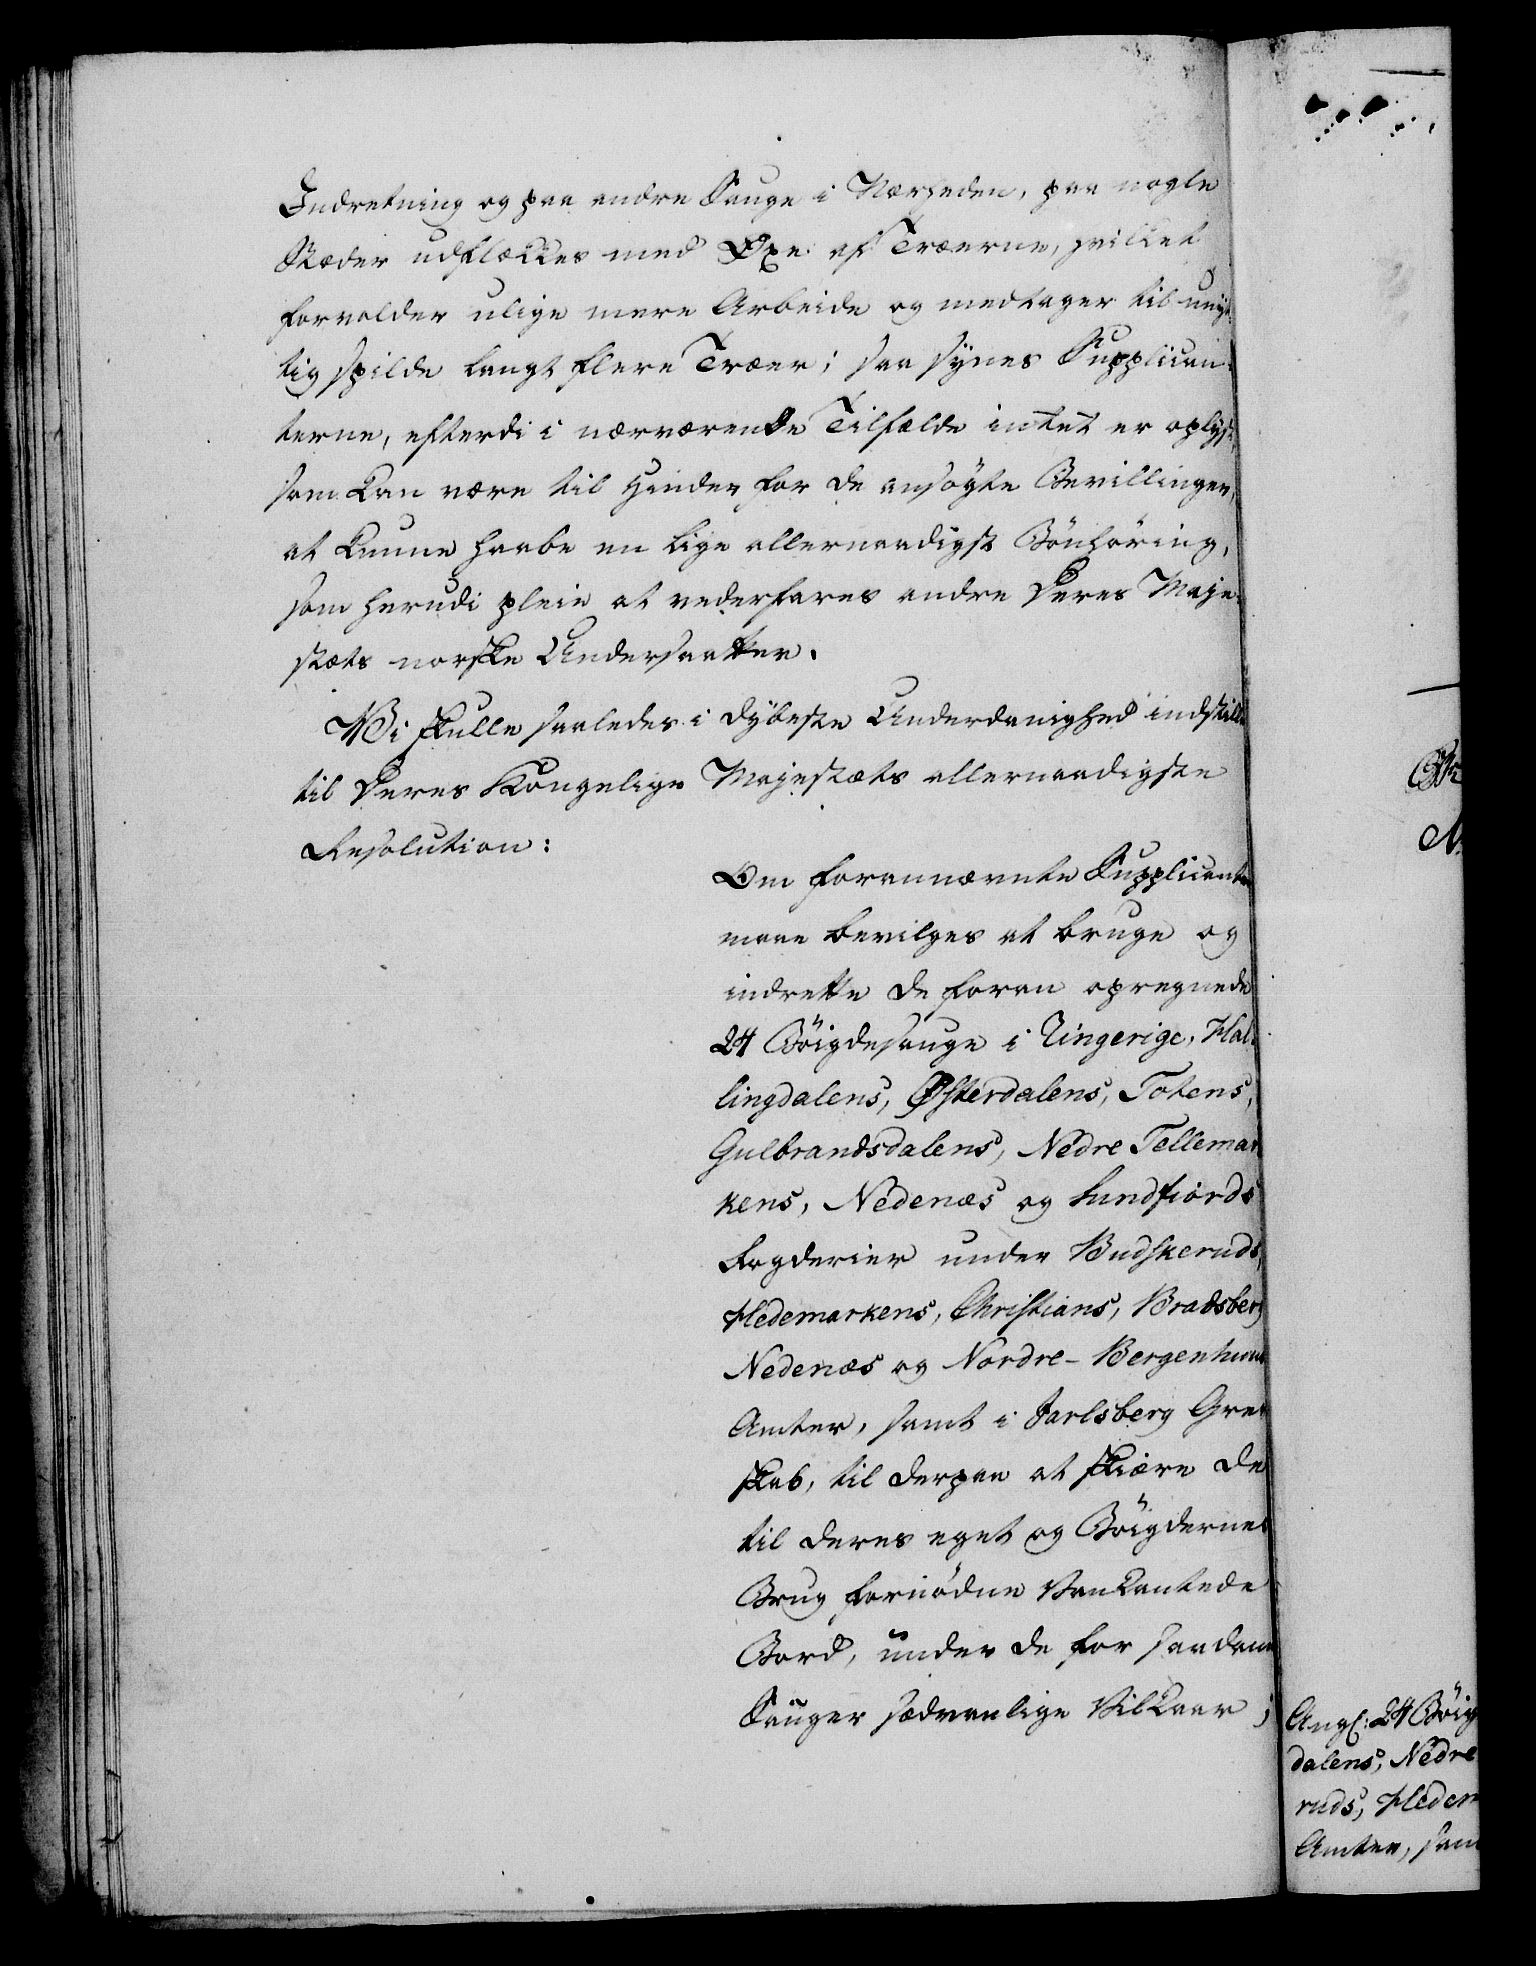 Indretning og paa andre Sauge i Nærheden, paa nogle
Stæder udflækkes med Øxe af Træerne, hvilket
forvolder ulige mere Arbeide og medtager til unyt-
tig spilde langt flere Træer; saa synes Supplican-
terne, efterdi i nærværende Tilfælde intet er oplyst,
som kan være til Hinder for de ansøgte Bevillinger,
at kunne haabe en lige allernaadigst Bönhöring,
som herudi pleie at vederfares andre Deres Maje-
stæts norske Undersaatter.
Vi skulle saaledes i dybeste Underdanighed indstille
til Deres Kongelige Majestæts allernaadigste
Resolution:
Om forannævnte Supplicanter
maae bevilges at bruge og
indrette de foran opregnede
24 Böigdesauge i Ringerige, Hal-
lingdalens, Østerdalens, Totens,
Gulbrandsdalens, Nedre Tellemar-
kens, Nedenæs og Sundfiords
Fogderier under Budskeruds,
Hedemarkens, Christians, Bradsberg
Nedenæs og Nordre-Bergenhuus
Amter, samt i Jarlsberg Grev-
skab, til derpaa at skiære de
til deres eget og Böigdernes
Brug fornödne Vankantede
Bord, under de for saadane
Sauger sædvanlige Vilkaar;
Ang: 24 Böig
dalens, Nedre
ruds, Hedem
Amter, sam